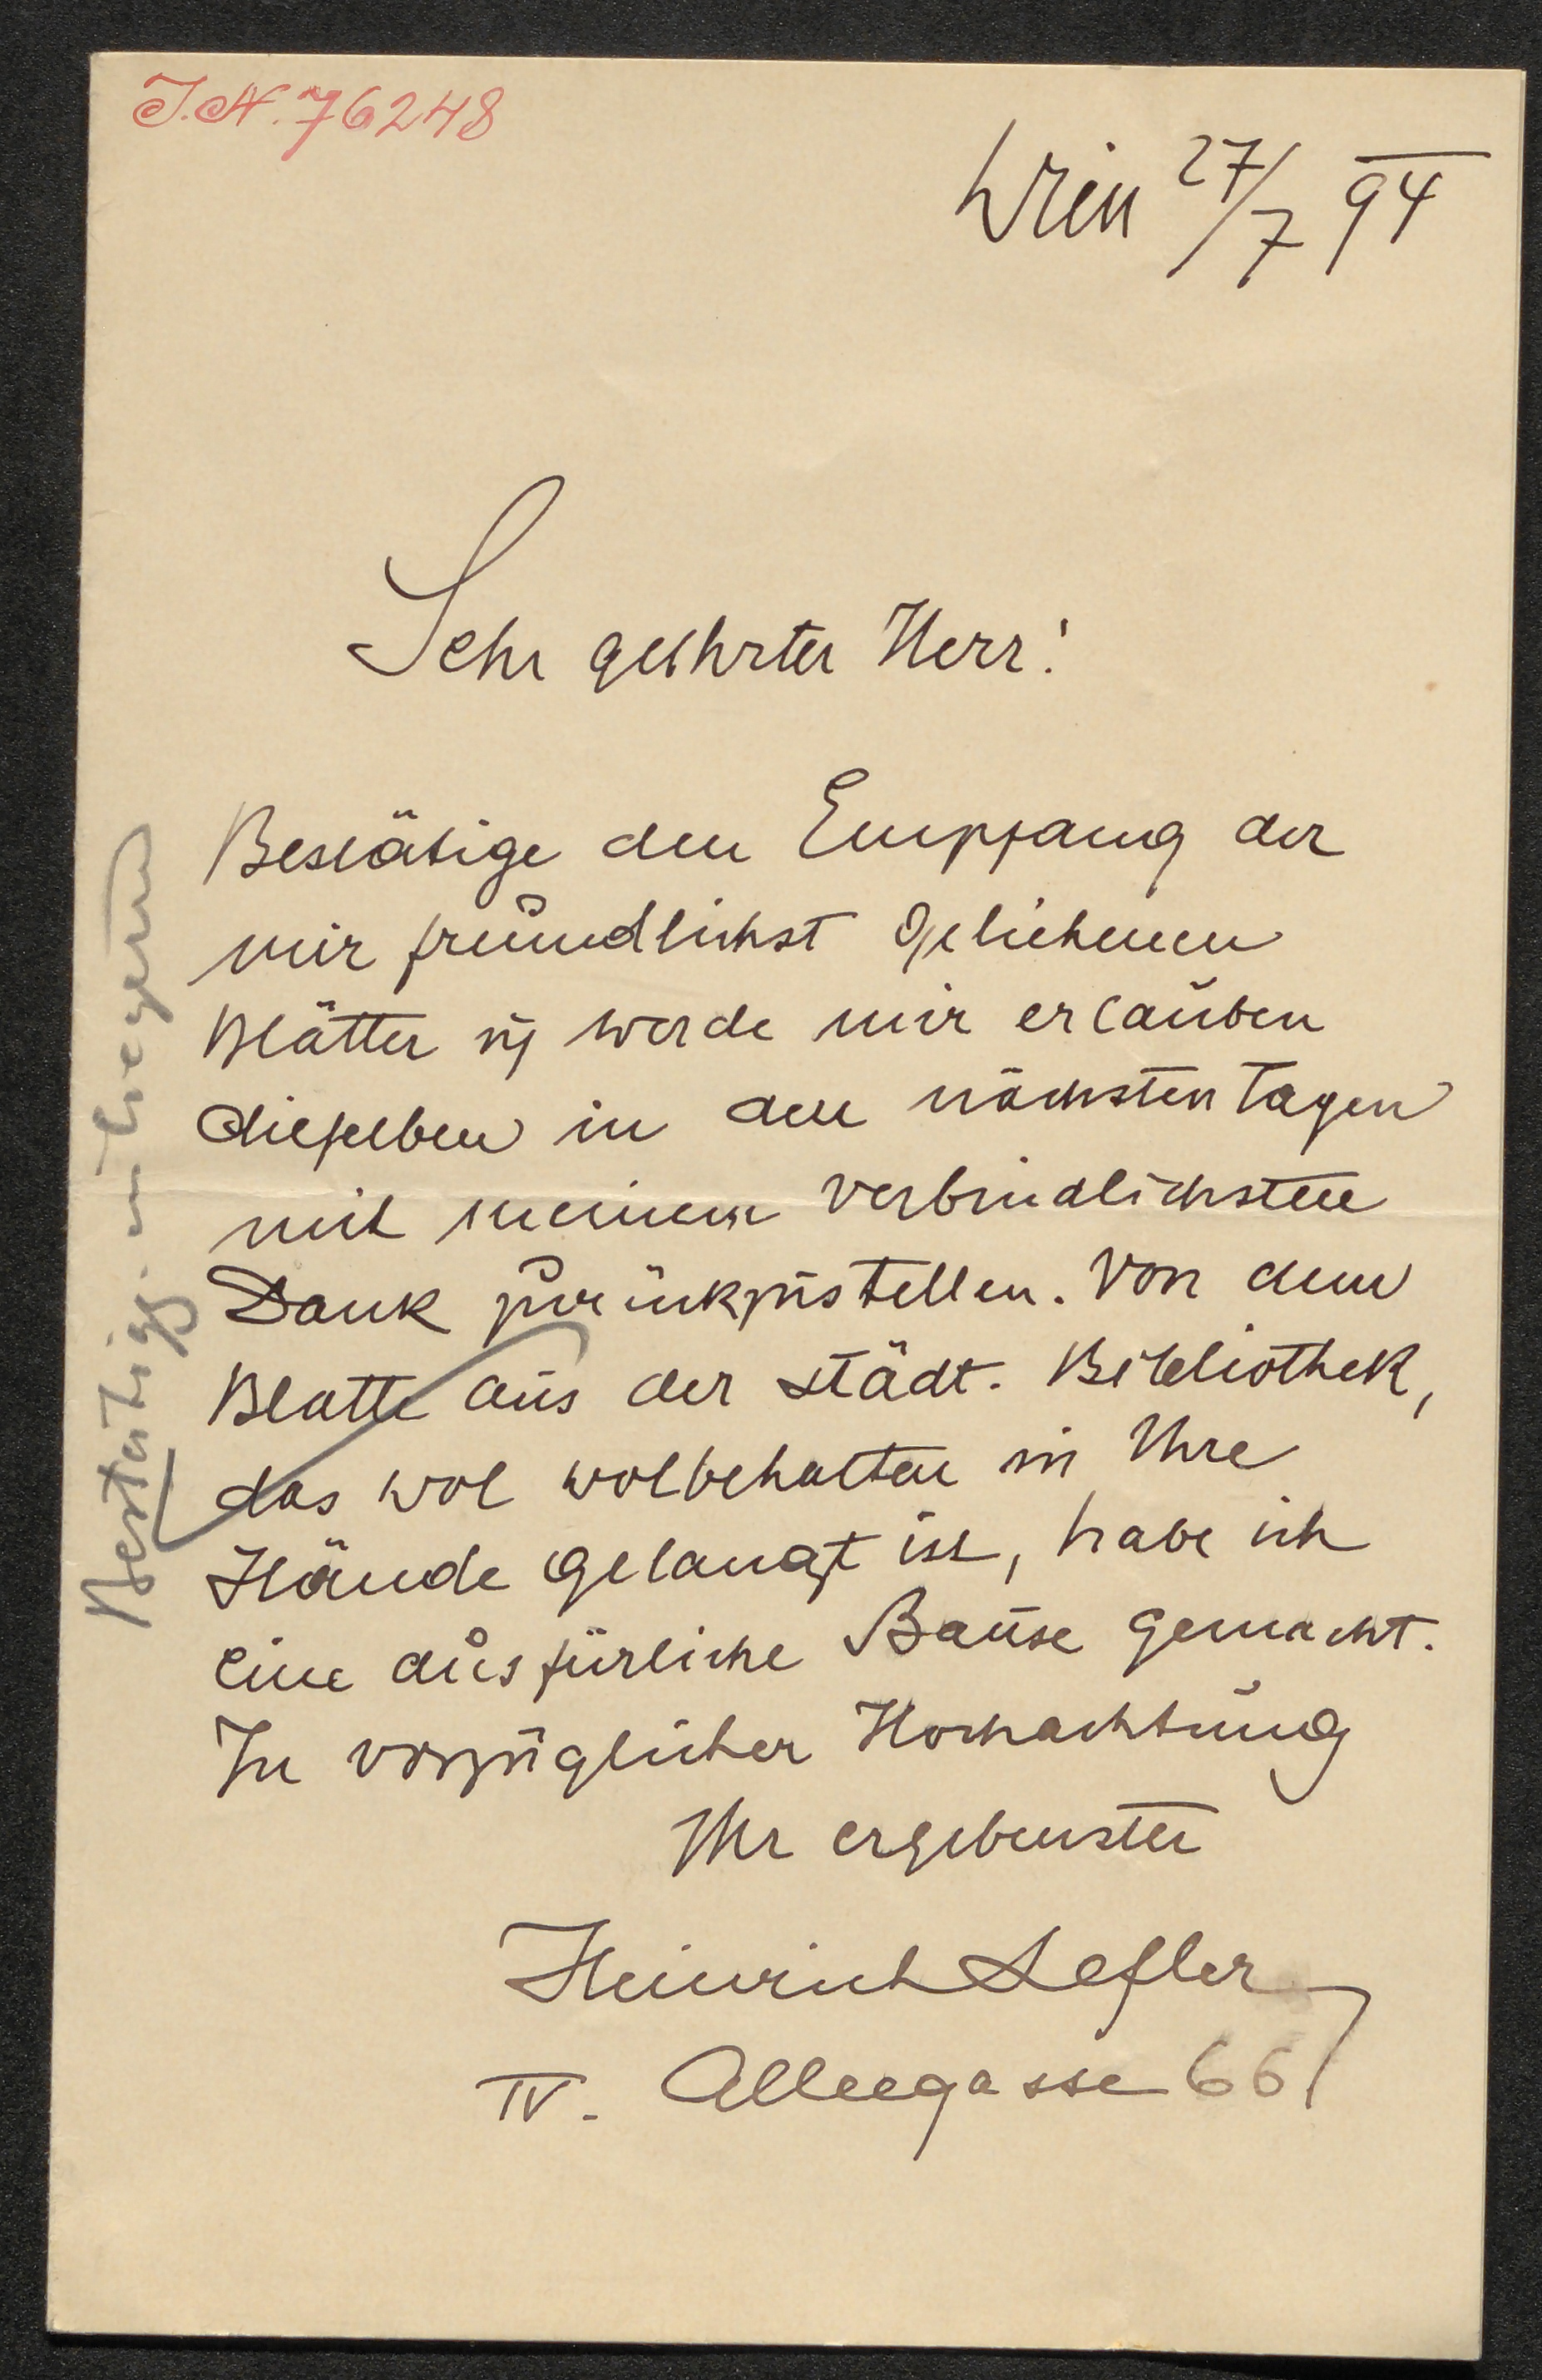 J.N. 76248
Wien 27/7 94
Sehr geehrter Herr!
Bestätige den Empfang der
mir freundlichst geliehenen
Blätter u werde mir erlauben
dieselben in den nächsten Tagen
mit meinem verbindlichsten
Dank zurückzustellen. Von dem
Blatte aus der städt. Bibliothek,
das wol wolbehalten in Ihre
Hände gelangt ist, habe ich
eine ausfürliche Bause gemacht.
In vorzüglicher Hochachtung
Ihr ergebenster
Heinrich Lefler
IV. Alleegasse 66